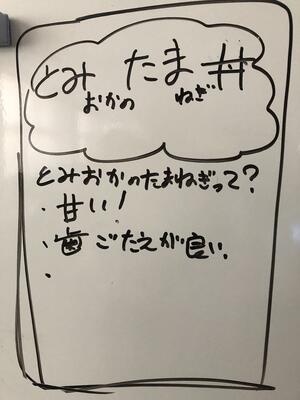 とみ たま丼
おかの ねぎ
とみおかのたまねぎって?
・甘い!
・歯ごたえが良い。
・